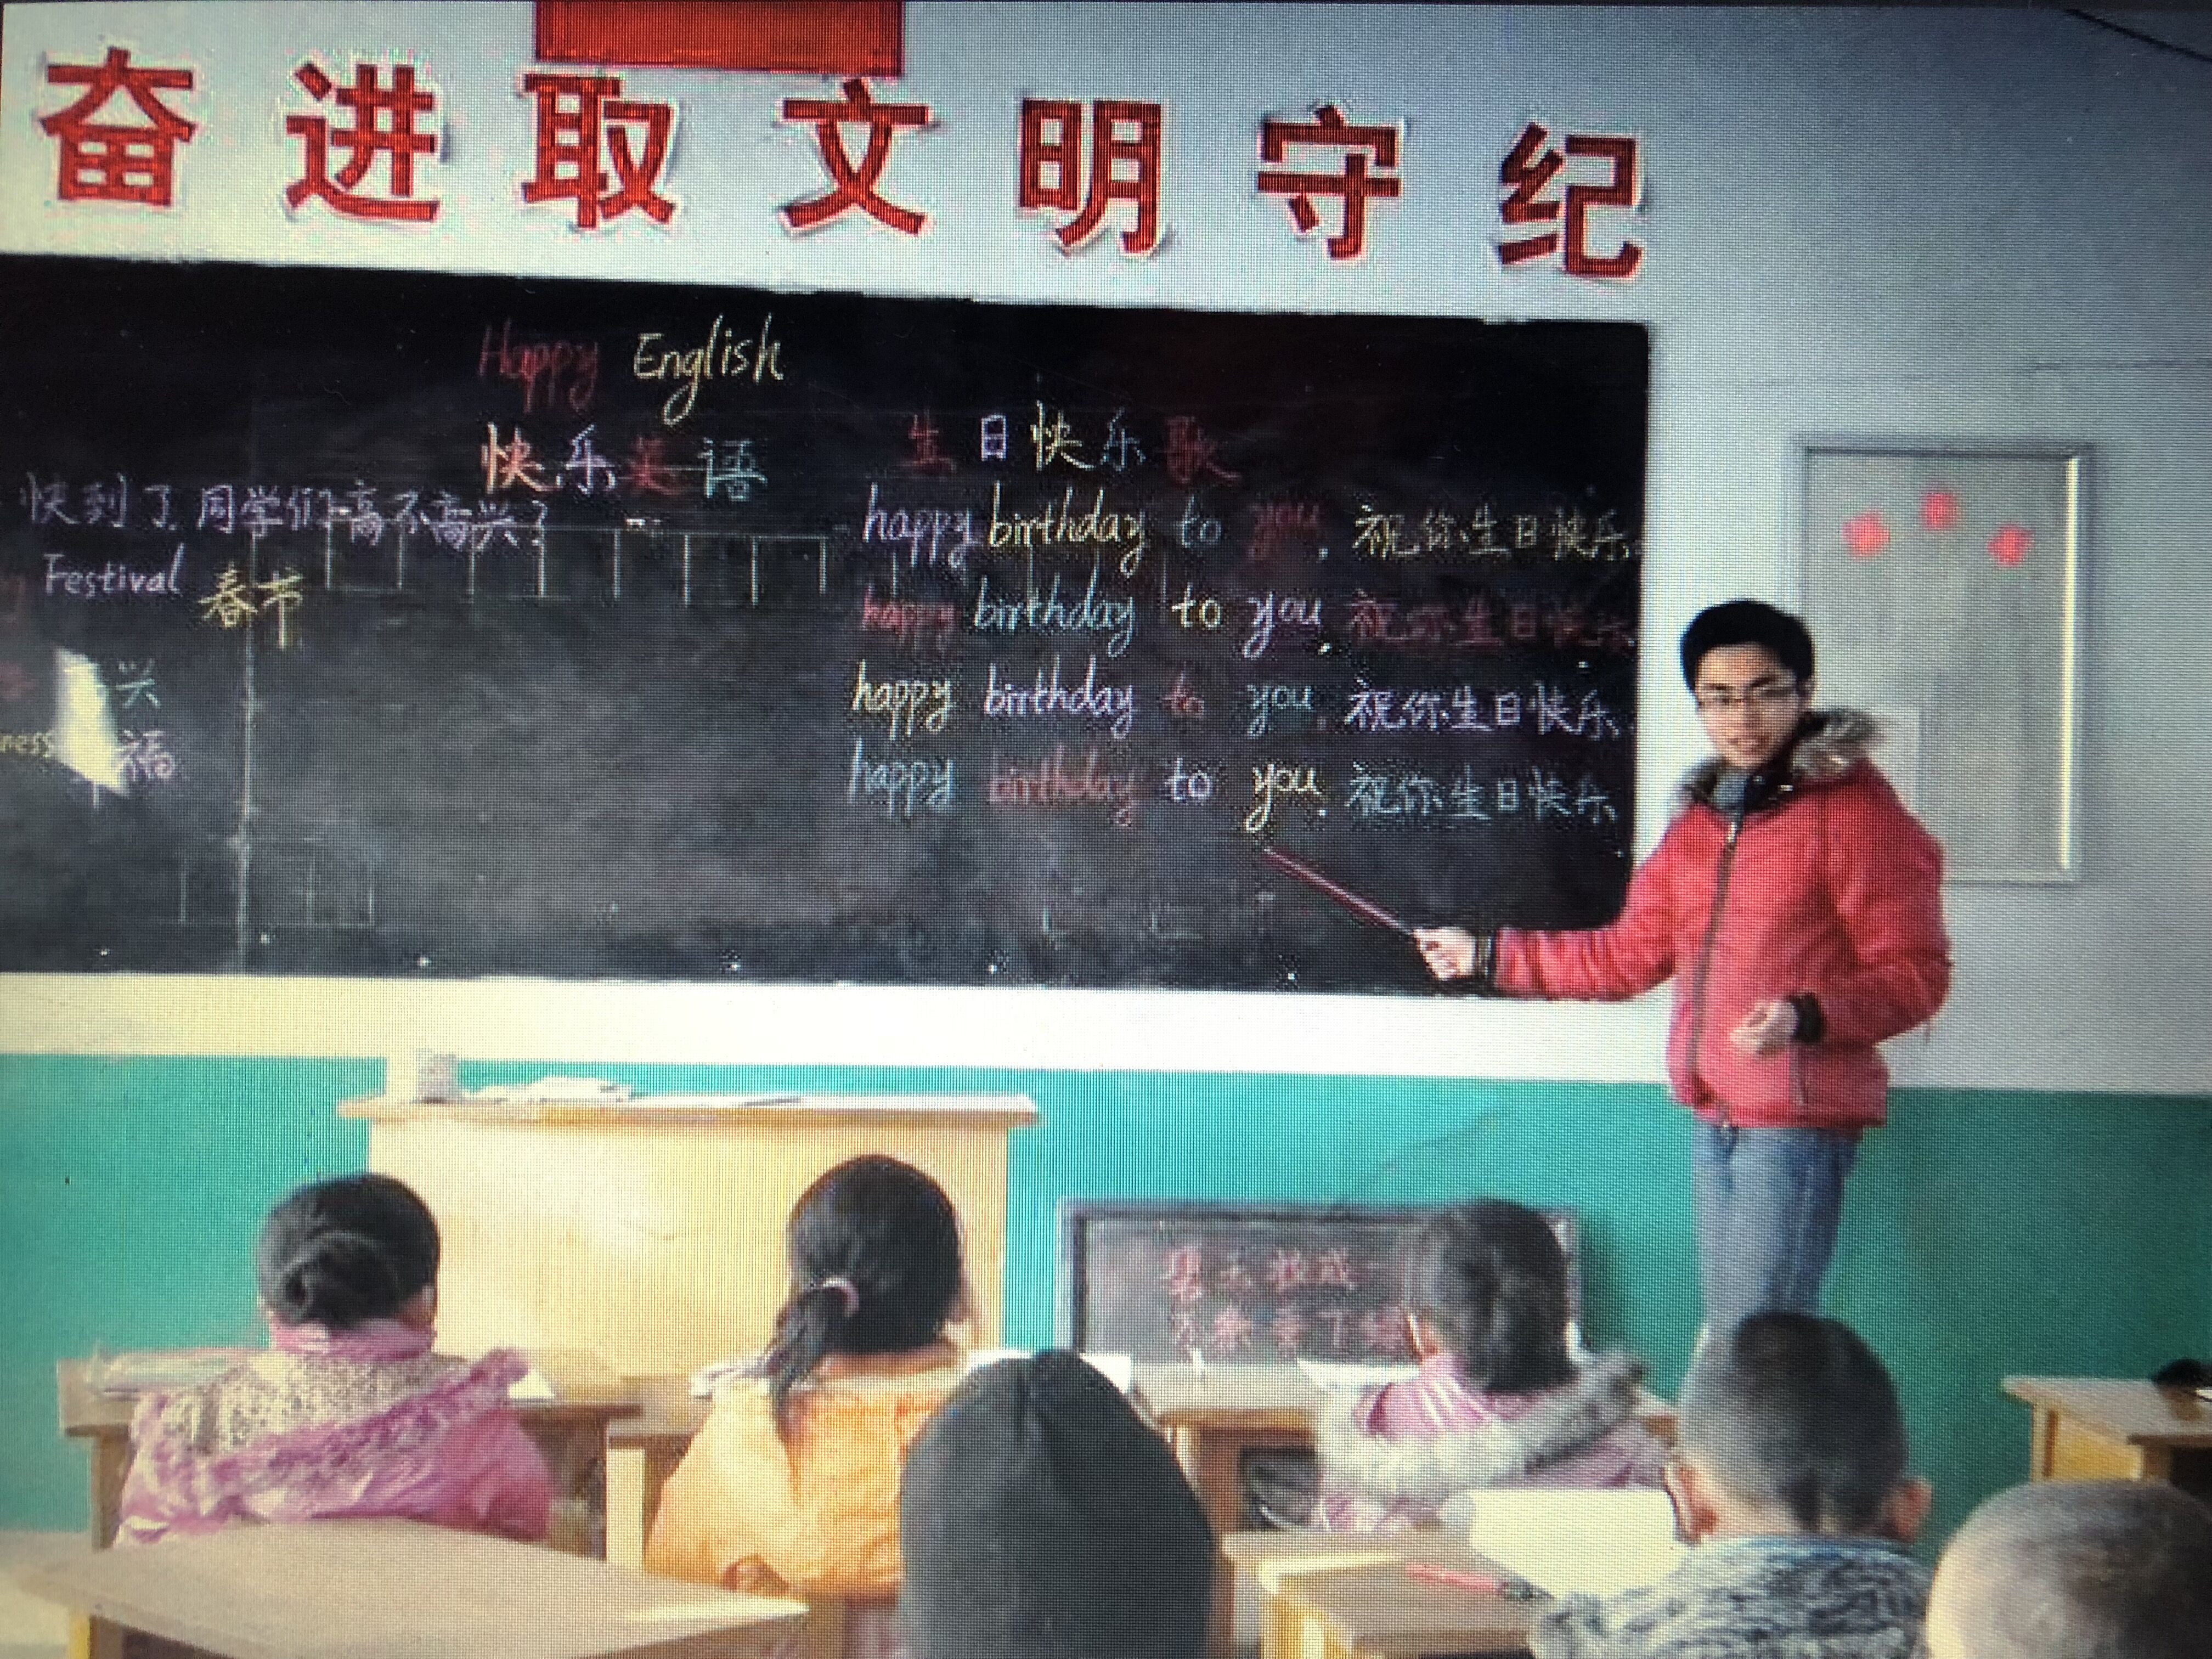 奋进取文明守纪
Happy English
快乐英语
快到了同学们高不高兴?
Festival 春节
兴
ness 福
生日快乐歌
happy birthday to you. 祝你生日快乐.
happy birthday to you. 祝你生日快乐.
happy birthday to you. 祝你生日快乐.
happy birthday to you. 祝你生日快乐.